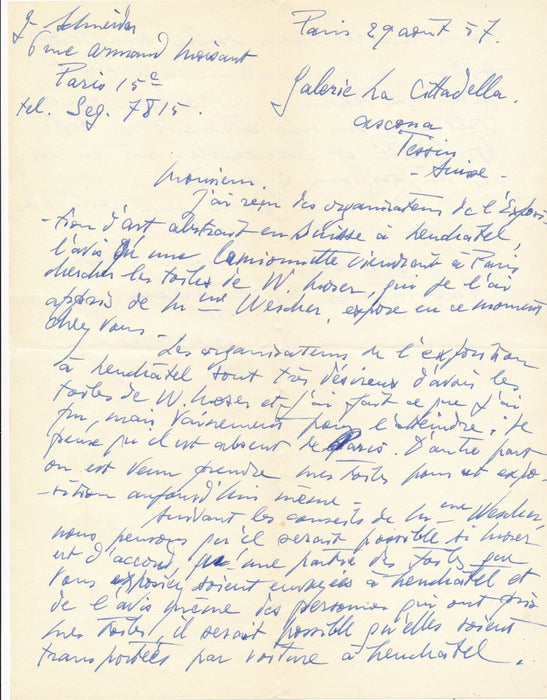 G. Schneider
6 rue Armand Moisant
Paris 15e
tel. Seg. 7815.
Paris 29 août 57.
Galerie La Cittadella.
Ascona
Tessin
- Suisse -
Monsieur.
J'ai reçu des organisateurs de l'Exposi-
-tion d'art abstrait en Suisse à Neuchâtel,
l'avis qu'une Camionnette viendrait à Paris
chercher les toiles de W. Moser, qui je l'ai
appris de Mme Wescher, expose en ce moment
chez vous -
Les organisateurs de l'exposition
à Neuchâtel sont très désireux d'avoir les
toiles de W. Moser et j'ai fait ce que j'ai
pu, mais vainement pour l'atteindre. Je
pense qu'il est absent de Paris. D'autre part
on est venu prendre mes toiles pour cet expo-
-sition aujourd'hui même -
Suivant les conseils de Mme Wescher,
nous pensons qu'il serait possible si Moser
est d'accord qu'une partie des toiles que
vous exposiez soient envoyées à Neuchâtel et
de l'avis même des personnes qui ont pris
mes toiles, il serait possible qu'elles soient
transportées par voiture à Neuchâtel.